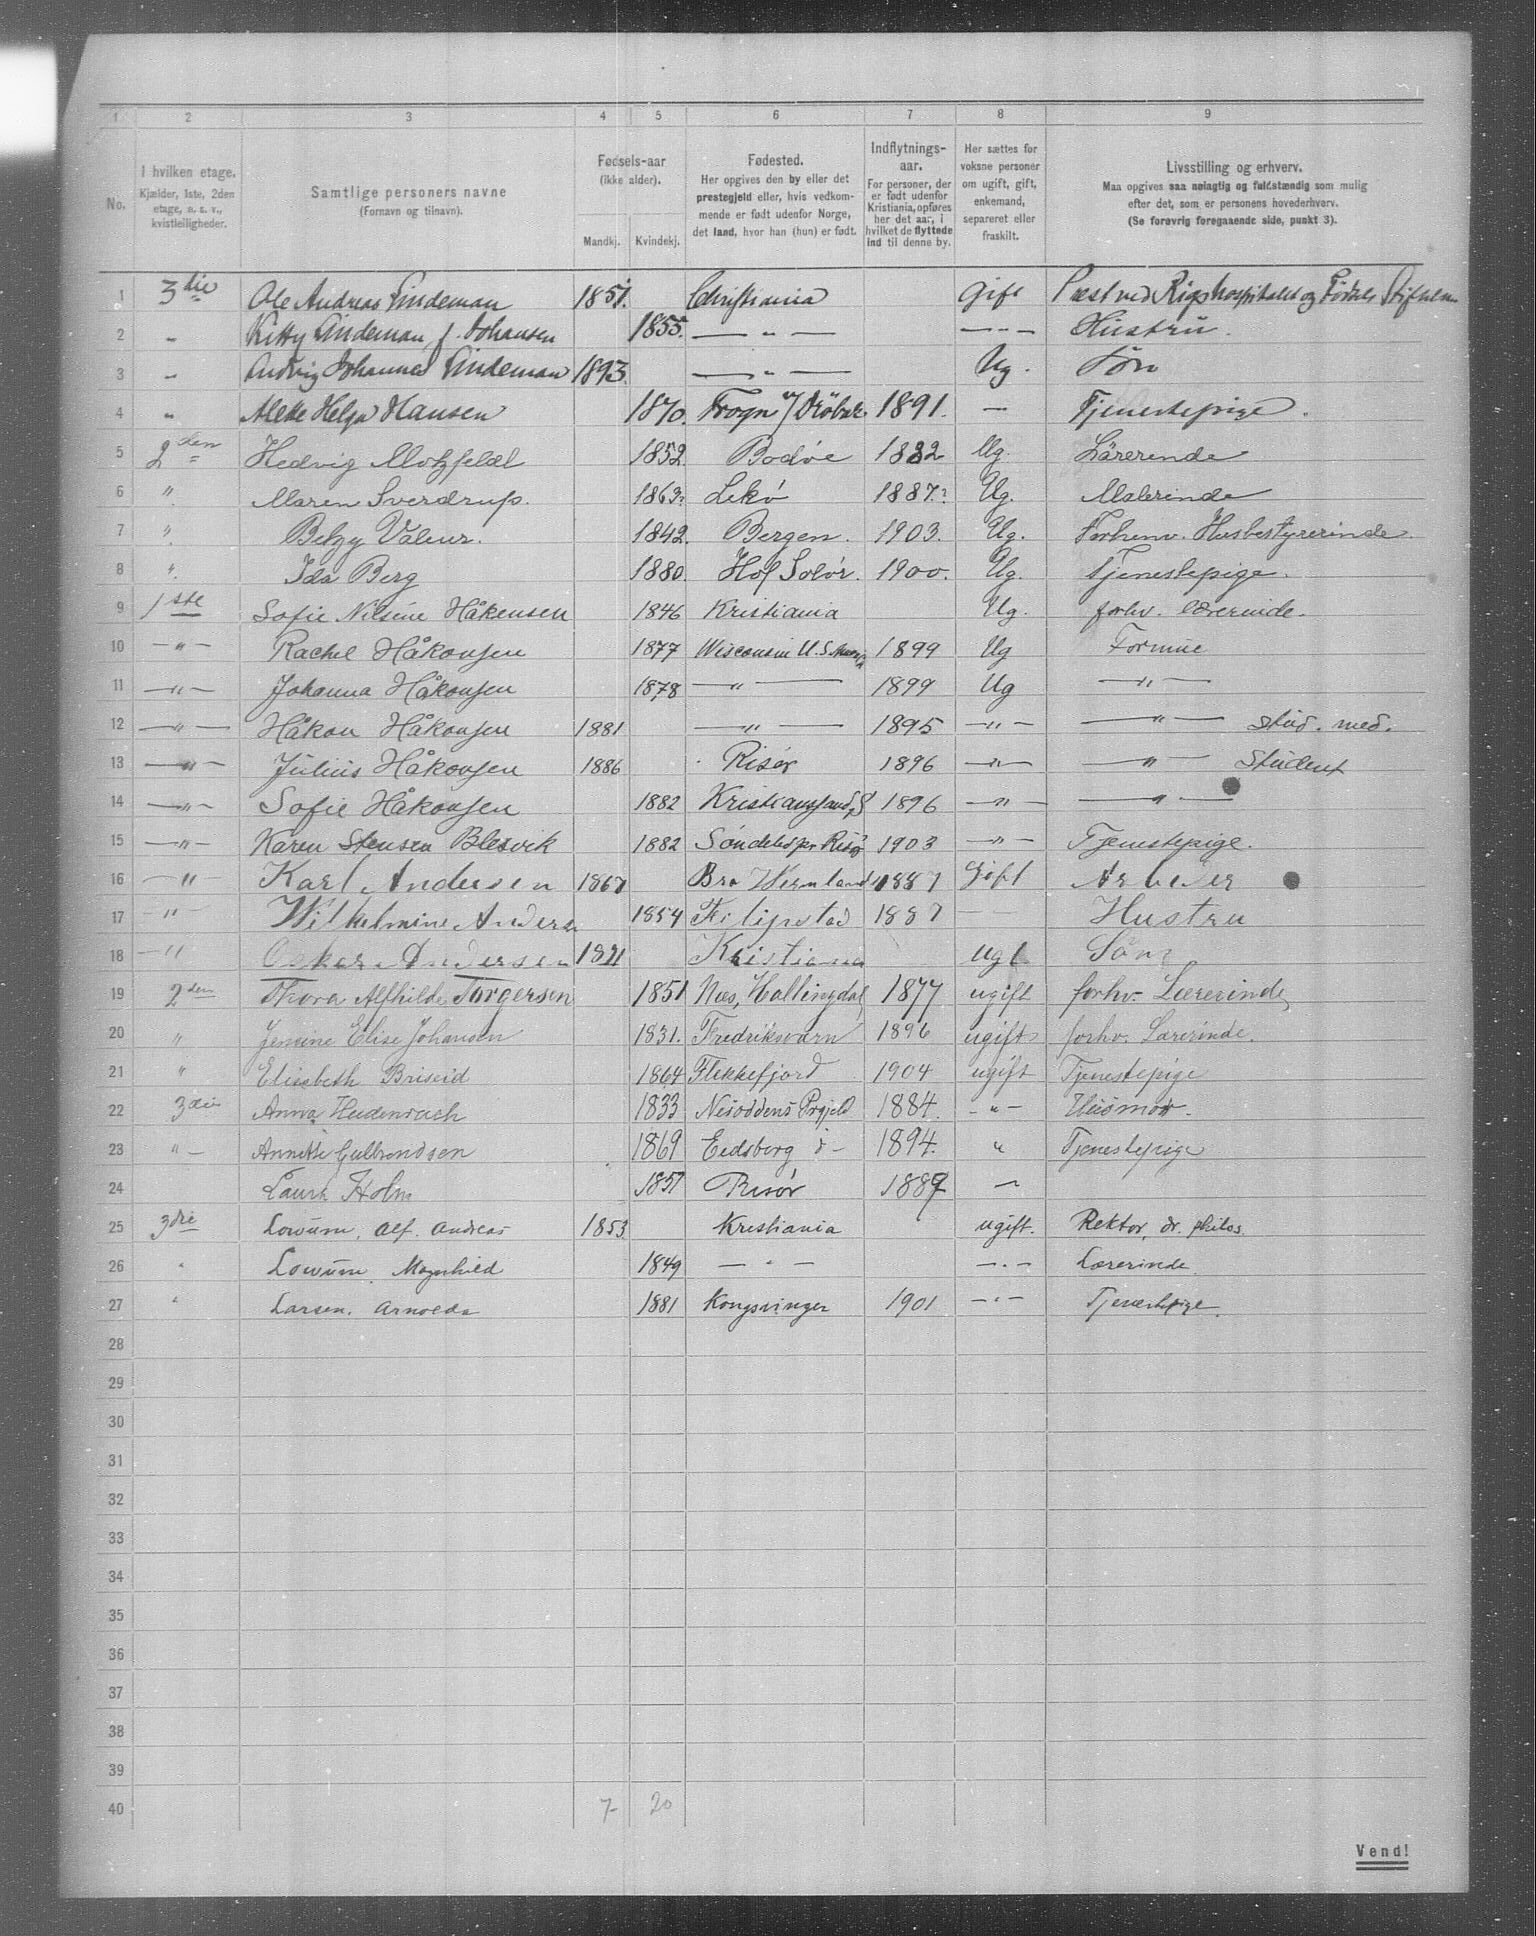 1 2 3 4 5 6 7 8 9
No.
I hvilken etage.
Kjælder, 1ste, 2den
etage, o. s. v.,
kvistleiligheder.
Samtlige personers navne
(Fornavn og tilnavn).
Fødsels-aar
(ikke alder).
Mandkj. Kvindekj.
Fødested.
Her opgives den by eller det
prestegjeld eller, hvis vedkom-
mende er født udenfor Norge,
det land, hvor han (hun) er født.
Indflytnings-
aar.
For personer, der
er født udenfor
Kristiania, opføres
her det aar, i
hvilket de flyttede
ind til denne by.
Her sættes for
voksne personer
om ugift, gift,
enkemand,
separeret eller
fraskilt.
Livsstilling og erhverv.
Maa opgives saa nøiagtig og fuldstændig som mulig
efter det, som er personens hovederhverv.
(Se forøvrig foregaaende side, punkt 3).
1 3die Ole Andreas Lindeman 1851. Christiania Gift Præst ved Rigshospitalet og Fødsels Stiftelsen
2 " Kitty Lindeman f. Johansen 1855. — " — — " — Hustru.
3 " Ludvig Johannes Lindeman 1893. — " — Ug. Søn
4 " Alette Helga Hansen 1870. Frogn v/ Drøbak. 1891. — Tjenestepige.
5 2den Hedvig Motzfeldt 1852 Bodøe 1882 Ug. Lärerinde
6 " Maren Sverdrup. 1863? Lekø 1887? Ug. Malerinde
7 " Betzy Valeur. 1842. Bergen. 1903. Ug. Forhenv. Husbestyrerinde.
8 " Ida Berg 1880. Hof Solør. 1900. Ug. Tjenestepige.
9 1ste Sofie Nilsine Håkensen 1846 Kristiania Ug. forhv. lærerinde.
10 — " — Rachel Håkonsen 1877 Wisconsin U.S. America 1899 Ug Formue
11 — " — Johanna Håkonsen 1878 — " — 1899 Ug — " —
12 — " — Håkon Håkonsen 1881 — " — 1895 — " — — " — stud. med.
13 — " — Julius Håkonsen 1886 Risør 1896 — " — — " — Student
14 — " — Sofie Håkonsen 1882 Kristianssand S 1896 — " — — " —
15 — " — Karen Stensen Blesvik 1882 Søndeled pr Risør 1903 — " — Tjenestepige.
16 — " — Karl Andersen 1867 Bro Wermland 1887 Gift Arbeder
17 — " — Wilhelmine Anders 1854 Filipstad 1887 — — Hustru
18 — " Oskar Andersen 1891 Kristiania ugt Søn
19 2den Thora Alfhilde Torgersen 1851 Næs, Hallingdal 1877 ugift forhv. Lærerinde,
20 " Jensine Elise Johansen 1831. Fredriksværn 1896 ugift forhv. Lærerinde.
21 " Elisabeth Briseid 1864 Flekkefjord 1904 ugift Tjenestepige
22 3die Anna Heidenreich 1833 Nesoddens Prgjeld 1884. — " — Husmor.
23 " — Annette Gulbrandsen 1869 Eidsberg d — 1894. " Tjenestepige
24 Laura Holm 1857 Risør 1889 "
25 3die Lowum, Alf. Andreas 1853 Kristiania ugift. Rektor, dr. philos.
26 " Lowum, Magnhild 1849 — " — — " — Lærerinde
27 " Larsen, Arnolda 1881 Kongsvinger 1901 — " — Tjenestpige.
28
29
30
31
32
33
34
35
36
37
38
39
40 7 20
Vend!